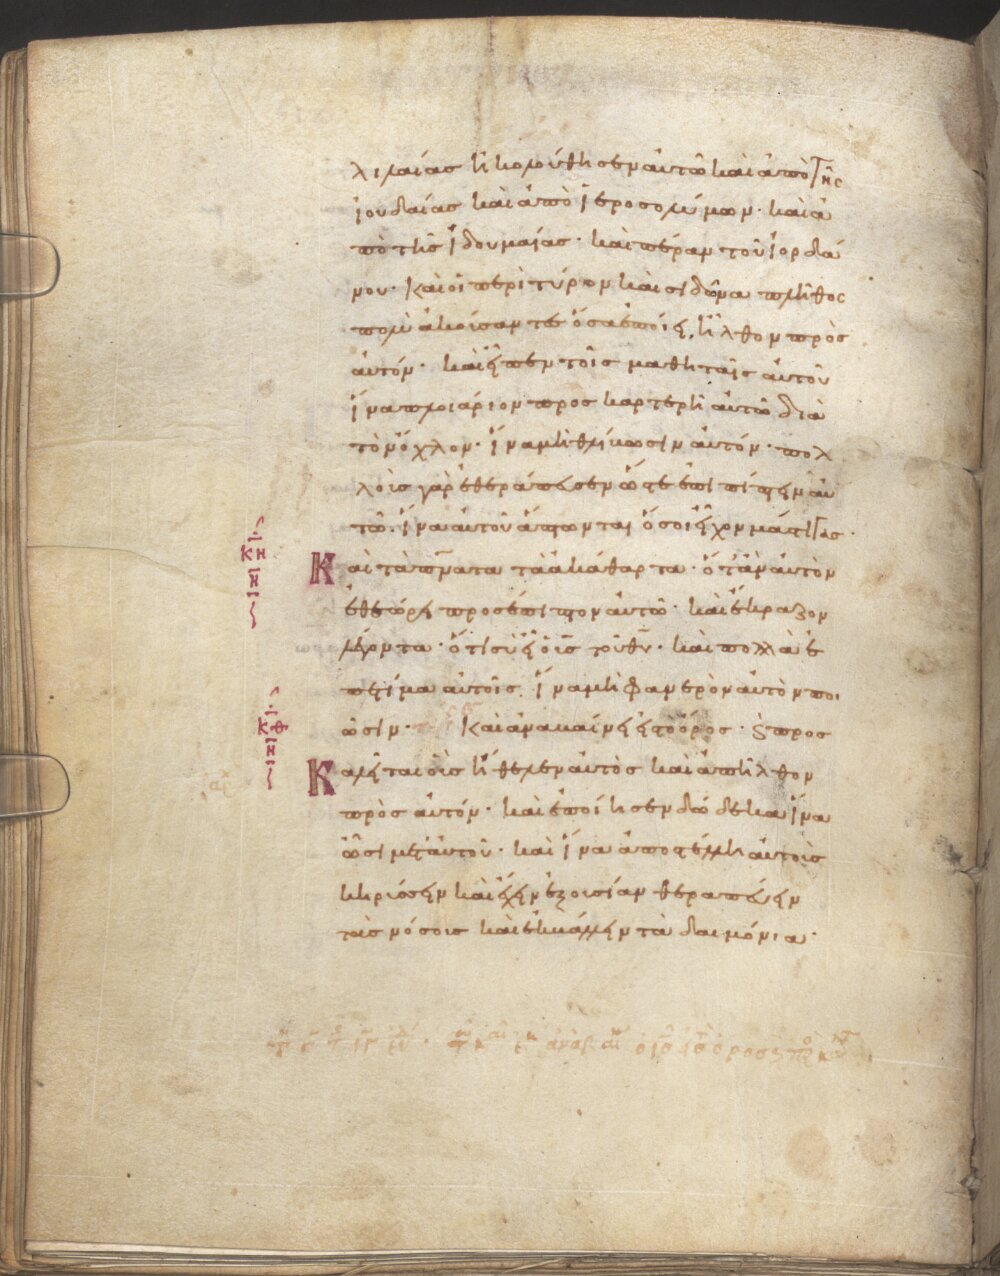 λιλαίας ἠκολούθησεν αὐτῶ καὶ ἀπὸ τῆς
ἰουδαίας καὶ ἀπὸ ἱεροσολύμων· καὶ ἀ
πὸ τῆς ἰδουμαίας· καὶ πέραν τοῦ ἰορδά
νου· Καὶ οἱ περὶ τύρον καὶ σιδῶνα πλῆθος
πολὺ ἀκούσαντες ὅσα ἐποίει, ἦλθον πρὸς
αὐτόν· καὶ εἶπεν τοῖς μαθηταῖς αὐτοῦ
ἵνα πλοιάριον προσκαρτερῆ αὐτῶ διὰ
τὸν ὄχλον· ἵνα μὴ θλίβωσιν αὐτόν· πολ
λοὺς γὰρ ἐθεράπευσεν ὥστε ἐπιπίπτειν αὐ
τῶ· ἵνα αὐτοῦ ἅψωνται ὅσοι εἶχον μάστιγας·
Καὶ τὰ πν̅ατα τὰ ἀκάθαρτα· ὅταν αὐτὸν
ἐθεώρει προσέπιπτον αὐτῶ· καὶ ἔκραζον
λέγοντα· ὅτι σὺ εἶ ὁ υι̅ς τοῦ θυ̅· καὶ πολλὰ ἐ
πετίμα αὐτοῖς. ἵνα μὴ φανερὸν αὐτὸν ποι
ῶσιν· Καὶ ἀναβαίνει εἰς τὸ ὄρος· ϛ προσ
Καλεῖται οὓς ἤθελεν αὐτὸς καὶ ἀπῆλθον
πρὸς αὐτόν· καὶ ἐποίησεν δώδεκα ἵνα
ὦσι μετ αὐτοῦ· καὶ ἵνα ἀποστέλλη αὐτοὺς
κηρύσσειν καὶ ἔχειν ἐξουσίαν θεραπεύειν
τὰς νόσους καὶ ἐκβάλλειν τὰ δαιμόνια·
κη
η
κθ
η